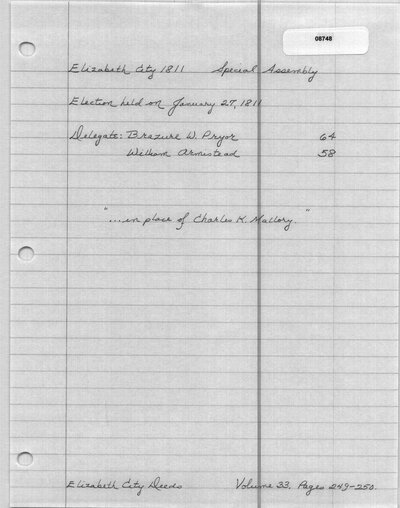 08748
Elizabeth City 1811 Special Assembly
Election held on January 27, 1811
Delegate: Brazure W. Pryor 64
William Armistead 58
"...in place of Charles K. Mallory."
Elizabeth City Deeds Volume 33, Pages 249-250.